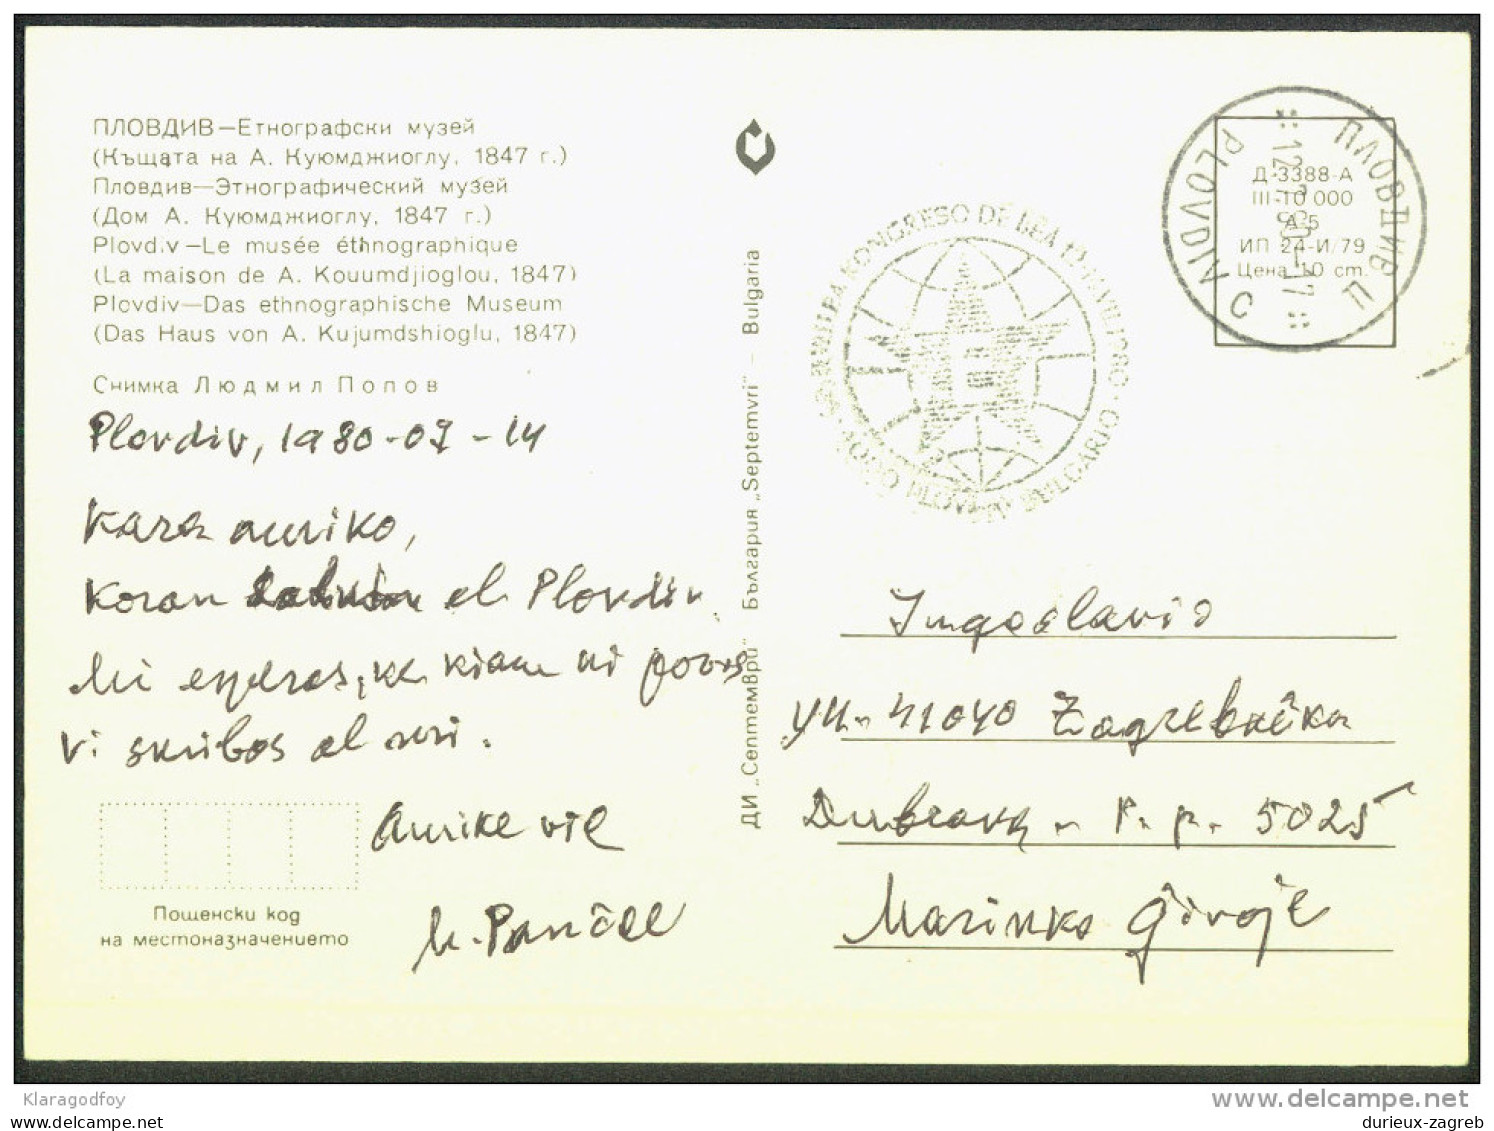 ПЛОВДИВ—Етнографски музей
(Къщата на А. Куюмджиоглу, 1847 г.)
Пловдив—Этнографический музей
(Дом А. Куюмджиоглу, 1847 г.)
Plovdiv—Le musée éthnographique
(La maison de A. Kouumdjioglou, 1847)
Plovdiv—Das ethnographische Museum
(Das Haus von A. Kujumdshioglu, 1847)
Снимка Людмил Попов
Plovdiv, 1980-07-14
Kara amiko,
Koran el Plovdiv.
Mi esperas, ke kiam mi povos
vi skribos al mi.
Amike via
ДИ „Септември“ България „Septemvri“ — Bulgaria
Пощенски код
на местоназначението
KONGRESO DE BEA
BULGARIO
ПЛОВДИВ
PLOVDIV
Д-3388-А
III-10 000
А-5
ИП 24-И/79
Цена 10 ст.
Jugoslavio
YU-41040 Zagreb
Dubrava - P. p. 5025
Marinko Ĝivoje
Klaragodfoy
www.delcampe.net
durieux-zagreb